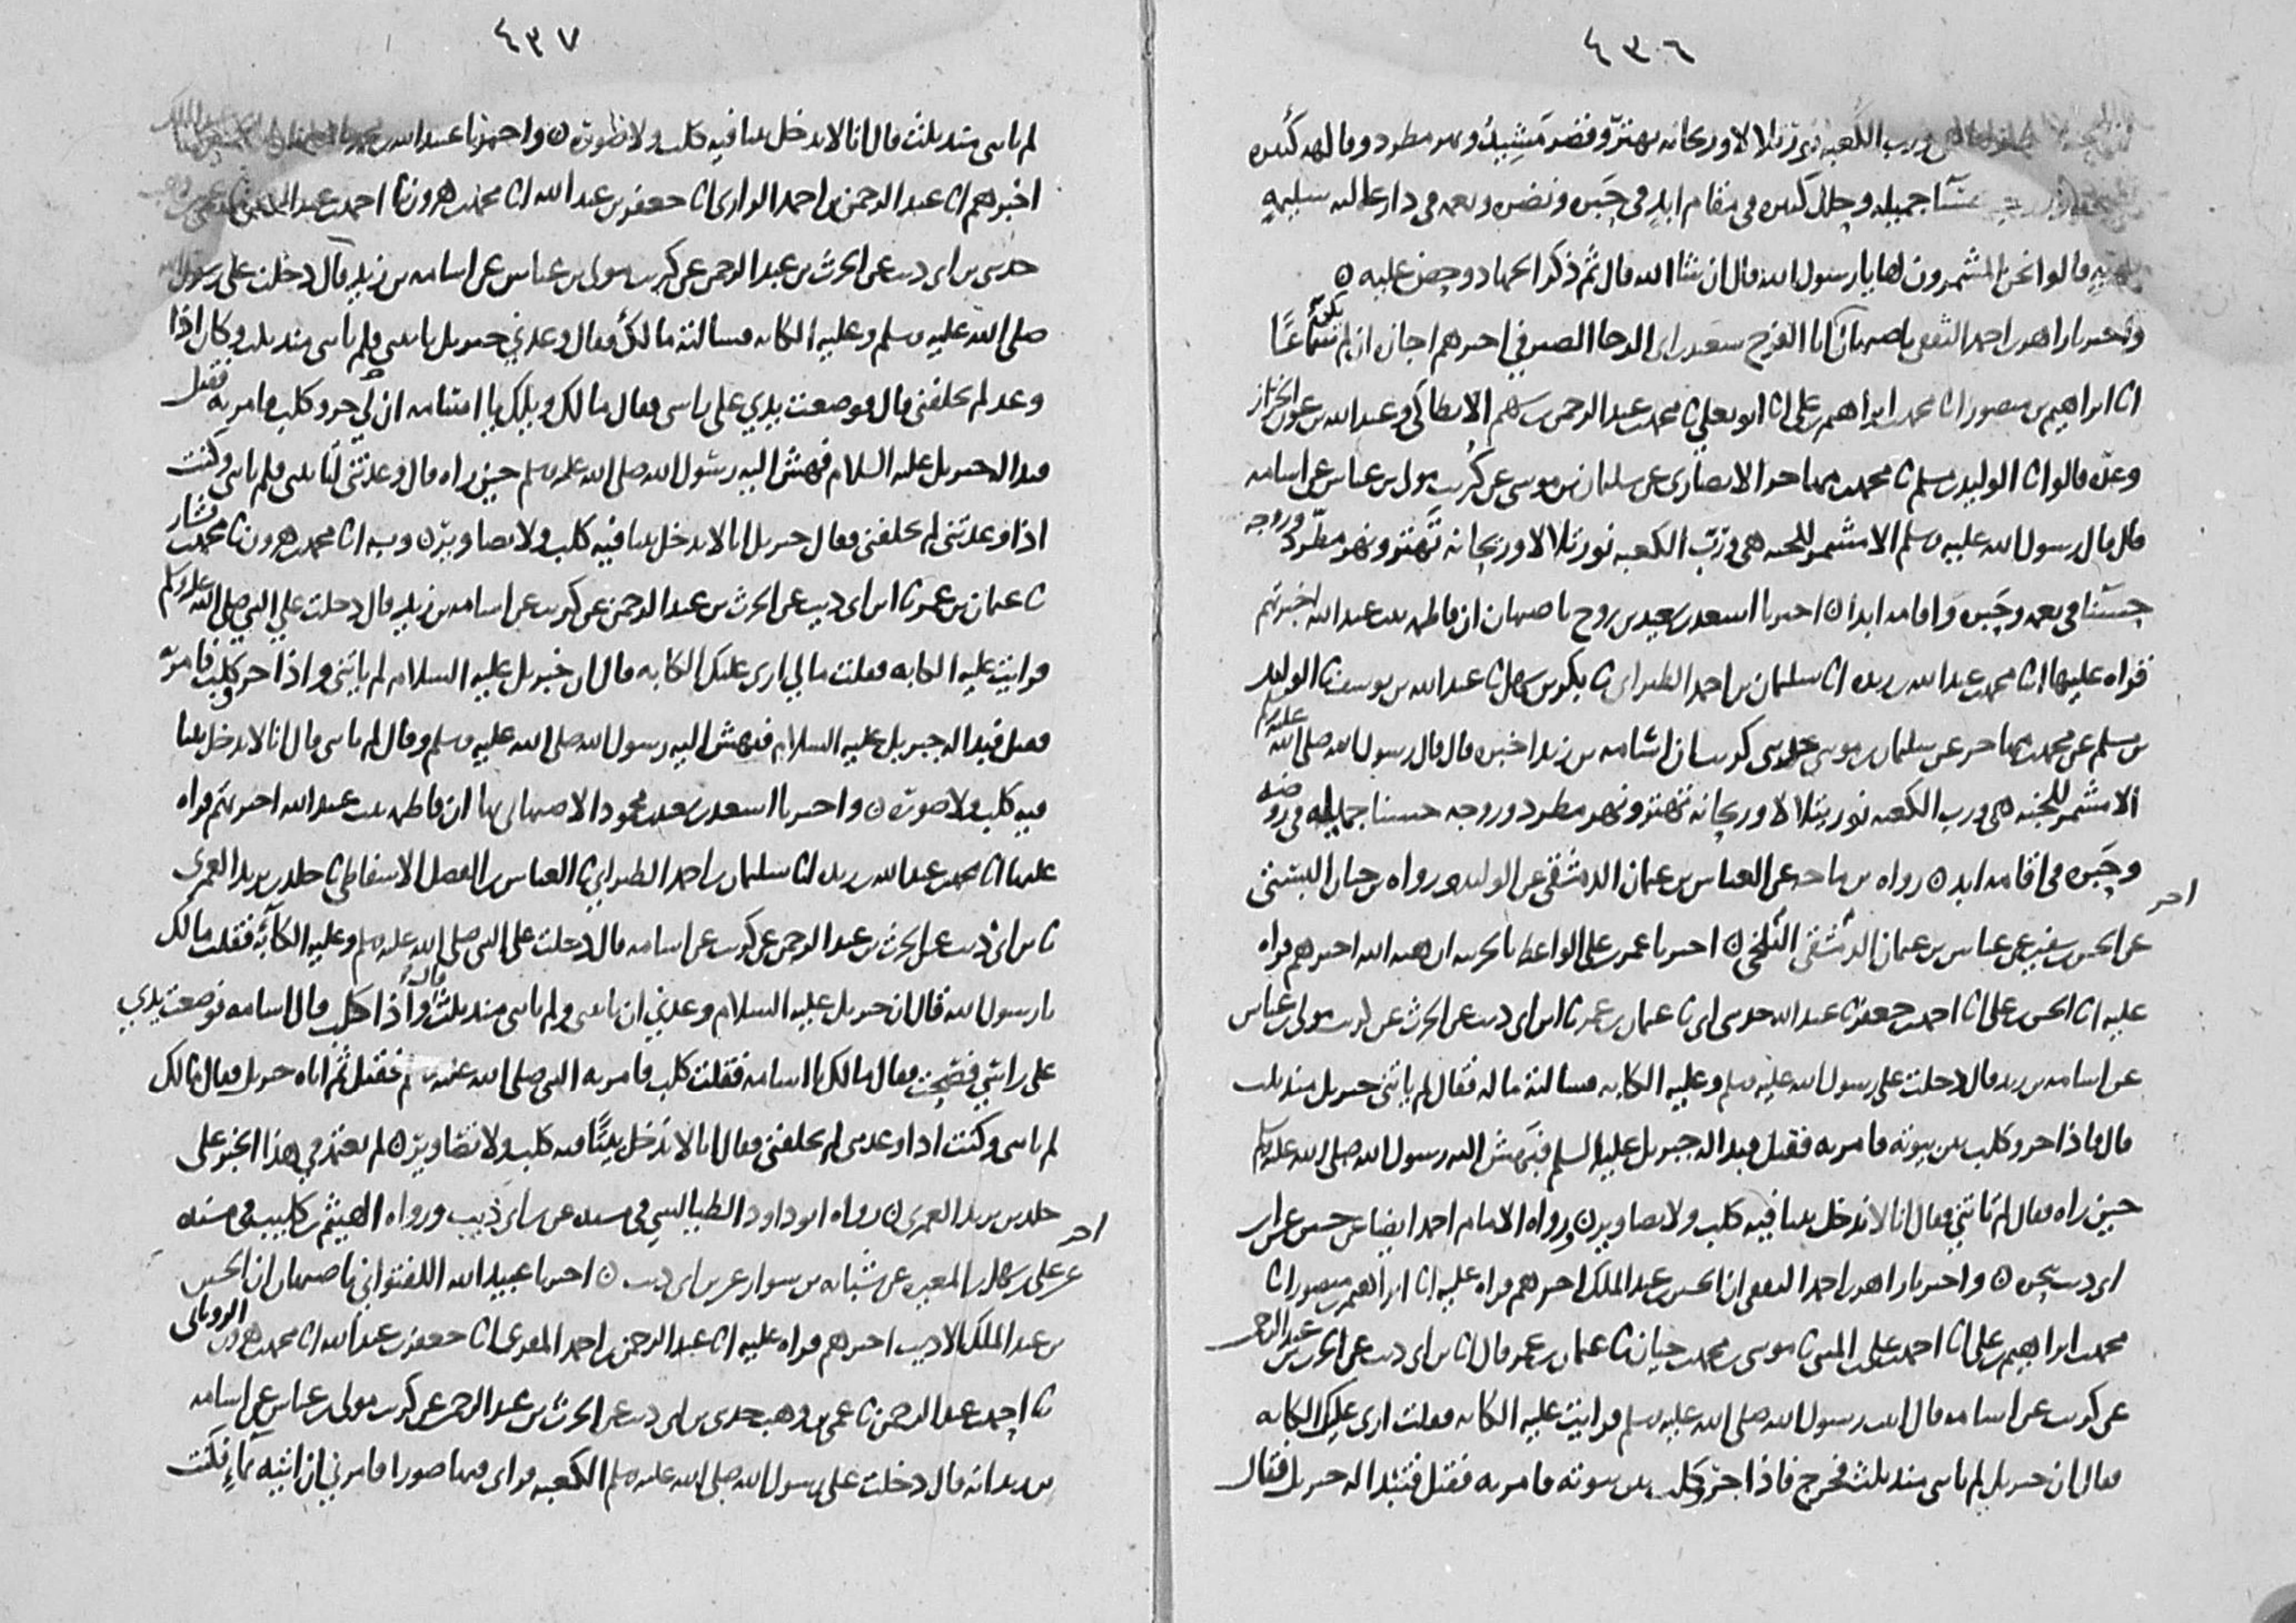 ٤٣٦
ورب الكعبة نور تتلالا وريحانه تهتز وقصر مشيد ونهر مطرد وفاكهه كثيره
حسنا جميله وحلل كثيره في مقام ابد في حبره ونضره ونعمه في دار عاليه سليمه
بهيه قالوا نحن المشمرون لها يا رسول الله قال ان شا الله قال ثم ذكر الجهاد وحض عليه ٥
واخبرنا زاهر بن احمد الثقفي باصبهان ان ابا الفرج سعيد بن ابي الرجا الصيرفي اخبرهم اجازه ان لم يكن سماعا
انا ابراهيم بن منصور انا محمد بن ابراهيم بن علي انا ابو يعلى ثا محمد بن عبد الرحمن بن سهم الانطاكي وعبد الله بن عون الخراز
وعده قالوا ثا الوليد بن مسلم ثا محمد بن مهاجر الانصاري عن سليمان بن موسى عن كريب مولى بن عباس عن اسامه
قال قال رسول الله صلى الله عليه وسلم الا مشمر للجنه هي ورب الكعبه نور تتلالا وريحانه تهتز ونهر مطرد وزوجه
حسنا في نعمه وحبره واقامه ابدا ٥ اخبرنا اسعد بن سعيد بن روح باصبهان ان فاطمه بنت عبد الله اخبرتهم
قراه عليها انا محمد بن عبد الله بن ريده انا سليمان بن احمد الطبراني ثا بكر بن سهل ثا عبد الله بن يوسف ثا الوليد
بن مسلم عن محمد بن مهاجر عن سليمان بن موسى حدثني كريب ان اسامه بن زيد اخبره قال قال رسول الله صلى الله عليه وسلم
الا مشمر للجنه هي ورب الكعبه نور يتلالا وريحانه تهتز ونهر مطرد وزوجه حسنا جميله في روضه
وحبره في اقامه ابد ٥ رواه بن ماجه عن العباس بن عثمان الدمشقي عن الوليد ورواه بن حبان البستي
عن الحسن بن سفين عن عباس بن عثمان الدمشقي البلخي ٥ اخبرنا عمر بن علي الواعظ بالحربيه ان هبه الله اخبرهم قراه
اخر
عليه انا الحسن بن علي انا احمد بن جعفر ثا عبد الله حدثني ابي ثا عثمان بن عمر ثا ابن ابي ذيب عن الحرث عن كريب مولى بن عباس
عن اسامه بن زيد قال دخلت على رسول الله صلى الله عليه وسلم وعليه الكابه فسالته ما له فقال لم ياتني جبريل منذ ثلث
قال فاذا جرو كلب بين بيوته فامر به فقتل فبدا له جبريل عليه السلم فبهش اليه رسول الله صلى الله عليه وسلم
حين راه فقال لم تاتني فقال انا لا ندخل بيتا فيه كلب ولا تصاوير ٥ ورواه الامام احمد ايضا عن حسين عن ابن
ابي ذيب بنحوه ٥ واخبرنا زاهر بن احمد الثقفي ان الحسين بن عبد الملك اخبرهم قراه عليه انا ابراهيم بن منصور انا
محمد بن ابراهيم بن علي انا احمد بن علي بن المثنى ثا موسى بن محمد بن حيان ثا عثمان بن عمر قال ثا بن ابي ذيب عن الحرث بن عبد الرحمن
عن كريب عن اسامه قال اتيت رسول الله صلى الله عليه وسلم فرايت عليه الكابه فقلت ارى عليك الكابه
فقال ان جبريل لم ياتني منذ ثلث فخرج فاذا جرو كلب بين بيوته فامر به فقتل فتبدا له جبريل فقال
٤٣٧
لم تاتني منذ ثلث قال انا لا ندخل بيتا فيه كلب ولا صوره ٥ واخبرنا عبد الله بن
اخبرهم انا عبد الرحمن بن احمد الرازي انا جعفر بن عبد الله انا محمد بن هرون ثا احمد بن عبد الرحمن
حدثني بن ابي ذيب عن الحرث بن عبد الرحمن عن كريب مولى بن عباس عن اسامه بن زيد قال دخلت على رسول الله
صلى الله عليه وسلم وعليه الكابه فسالته مالك فقال وعدني جبريل ياتيني فلم ياتني منذ ثلث وكان اذا
وعد لم يخلفني قال فوضعت يدي على راسي فقال مالك ويلك يا اسامه ان لي جرو كلب فامر به فقتل
فبدا له جبريل عليه السلام فهش اليه رسول الله صلى الله عليه وسلم حين راه قال وعدتني تاتيني فلم تاتني وكنت
اذا وعدتني لم تخلفني فقال جبريل انا لا ندخل بيتا فيه كلب ولا تصاوير ٥ وبه انا محمد بن هرون ثا محمد بن بشار
ثا عثمان بن عمر ثا ابن ابي ذيب عن الحرث بن عبد الرحمن عن كريب عن اسامه بن زيد قال دخلت على النبي صلى الله عليه وسلم
فرايت عليه الكابه فقلت ما لي ارى عليك الكابه قال ان جبريل عليه السلام لم ياتني واذا جرو كلب فامر به
فقتل فبدا له جبريل عليه السلام فبهش اليه رسول الله صلى الله عليه وسلم وقال لم تاتني قال انا لا ندخل بيتا
فيه كلب ولا صوره ٥ واخبرنا اسعد بن سعيد بن محمود الاصبهاني بها ان فاطمه بنت عبد الله اخبرتهم قراه
عليها انا محمد بن عبد الله بن ريده انا سليمان بن احمد الطبراني ثا العباس بن الفضل الاسفاطي ثا خلد بن يزيد العمري
ثا بن ابي ذيب عن الحرث بن عبد الرحمن عن كريب عن اسامه قال دخلت على النبي صلى الله عليه وسلم وعليه الكآبه فقلت مالك
يا رسول الله قال ان جبريل عليه السلام وعدني ان ياتيني ولم ياتني منذ ثلث قال واذا كلب قال اسامه فوضعت يدي
على راسي فصحت فقال مالك يا اسامه فقلت كلب فامر به النبي صلى الله عليه وسلم فقتل ثم اتاه جبريل فقال مالك
لم تاتني وكنت اذا وعدتني لم تخلفني فقال انا لا ندخل بيتا فيه كلب ولا تصاوير ٥ لم نعتمد في هذا الخبر على
خلد بن يزيد العمري ٥ رواه ابو داود الطيالسي في مسنده عن بن ابي ذيب ورواه الهيثم بن كليب في مسنده
اخر
عن علي بن سهل بن المغيره عن شبابه بن سوار عن بن ابي ذيب ٥ اخبرنا عبيد الله اللفتواني باصبهان ان الحسين
بن عبد الملك الاديب اخبرهم قراه عليه انا عبد الرحمن بن احمد المقري انا جعفر بن عبد الله انا محمد بن هرون الروياني
ثا احمد بن عبد الرحمن ثا عمي بن وهب حدثني بن ابي ذيب عن الحرث بن عبد الرحمن عن كريب مولى بن عباس عن اسامه
بن زيد انه قال دخلت على رسول الله صلى الله عليه وسلم الكعبه فراى فيها صورا فامرني ان اتيه بماء فكنت